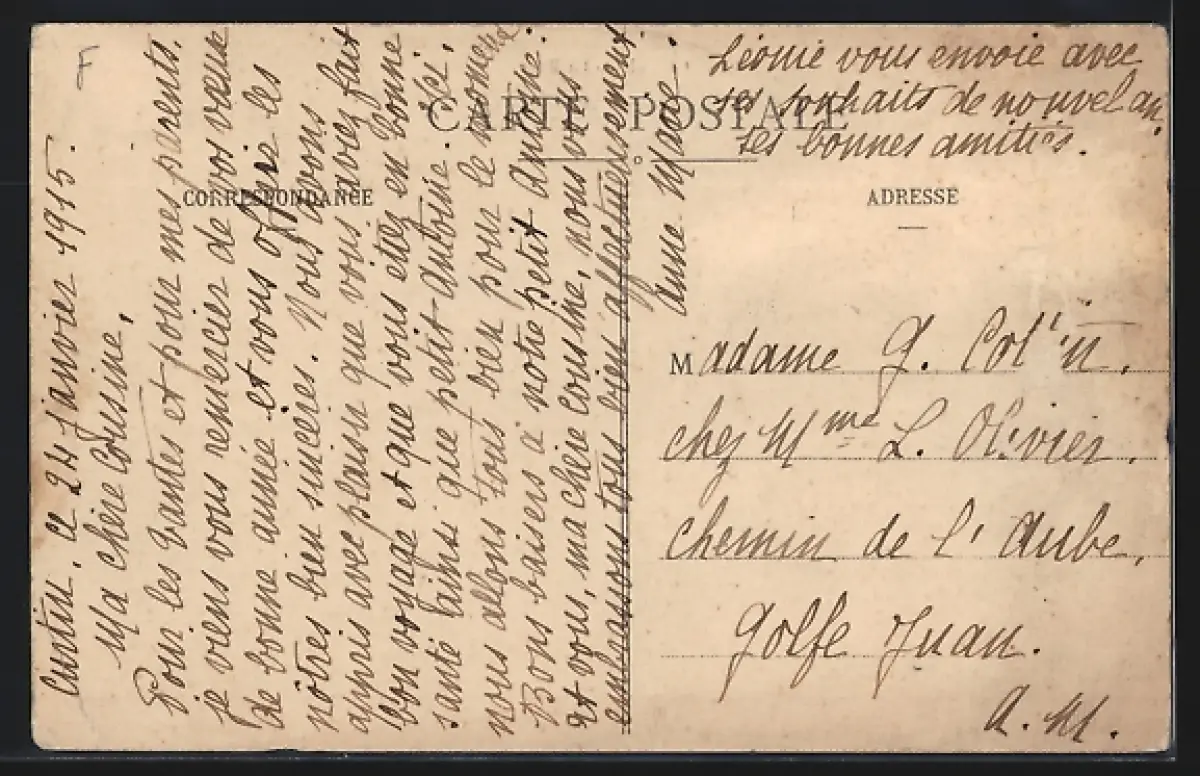 F
CARTE POSTALE
CORRESPONDANCE
ADRESSE
ce 24 Janvier 1915.
Ma chère Cousine,
Pour les tantes et pour mes parents,
je viens vous remercier de vos vœux
de bonne année et vous offre les
nôtres bien sincères. Nous avons
appris avec plaisir que vous aviez fait
bon voyage et que vous étiez en bonne
santé ainsi que petit Antoine. Ici,
nous alons tous bien pour le moment
Bons baisers à notre petit Antoine.
et vous, ma chère cousine, nous vous
embrassons tous bien affectueusement.
Anne Marie.
Léonie vous envoie avec
ses souhaits de nouvel an,
ses bonnes amitiés.
Madame G. Col
chez Mme L. Olivier,
chemin de l'Aube,
Golfe Juan.
A. M.